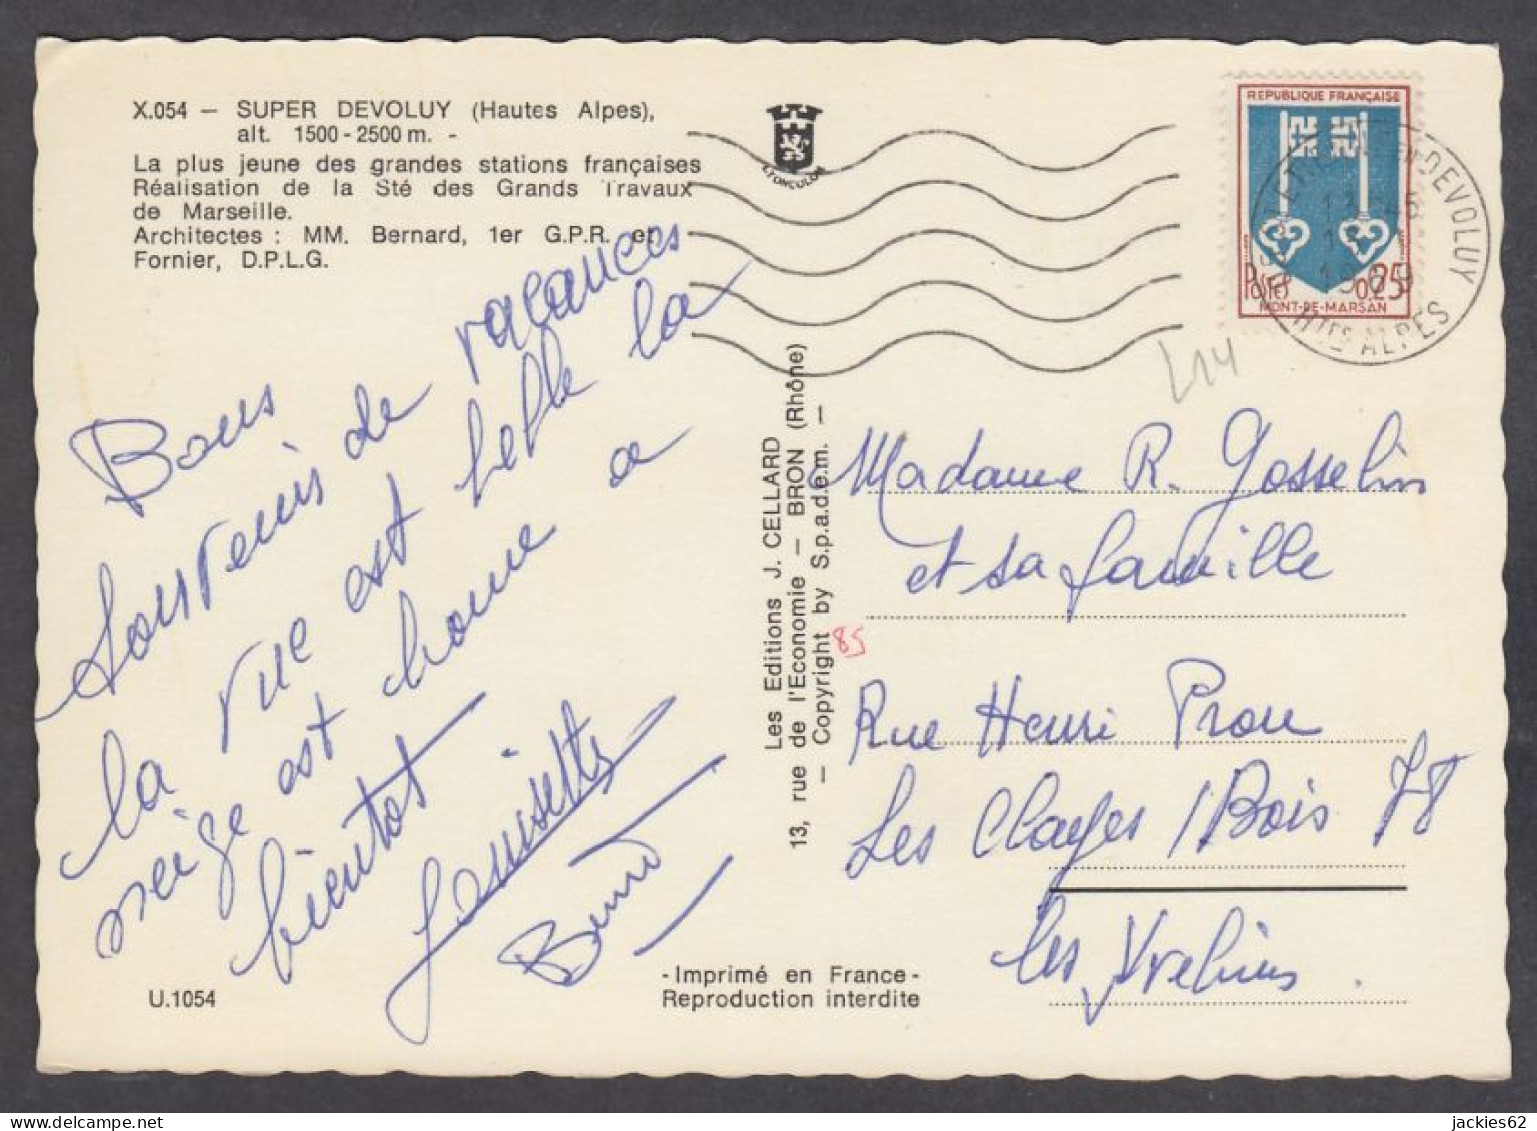 X.054 — SUPER DEVOLUY (Hautes Alpes),
alt. 1500 - 2500 m. -
La plus jeune des grandes stations françaises
Réalisation de la Sté des Grands Travaux
de Marseille.
Architectes : MM. Bernard, 1er G.P.R. et
Fornier, D.P.L.G.
Bons
souvenirs de vacances
la vue est belle la
neige est bonne a
bientot
Louisette
U.1054
LYONCOLOR
Les Editions J. CELLARD
13, rue de l'Economie — BRON (Rhône)
— Copyright by S.p.a.d.e.m. —
- Imprimé en France -
Reproduction interdite
REPUBLIQUE FRANÇAISE
Postes 0.25
MONT-DE-MARSAN
EN DEVOLUY
HTES ALPES
Madame R. Gosselin
et sa famille
85
Rue Henri Prou
Les Clayes / Bois 78
les Yvelines.
jackies62